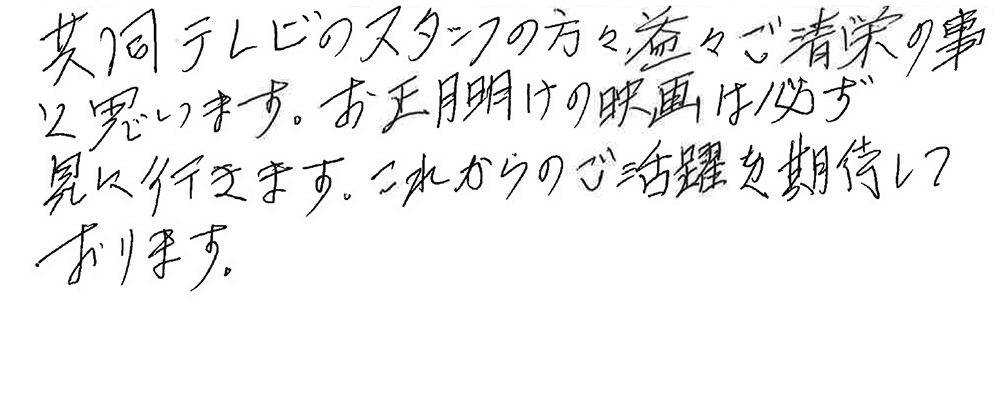 共同テレビのスタッフの方々、益々ご清栄の事
と思います。お正月明けの映画は必ず
見に行きます。これからのご活躍を期待して
おります。